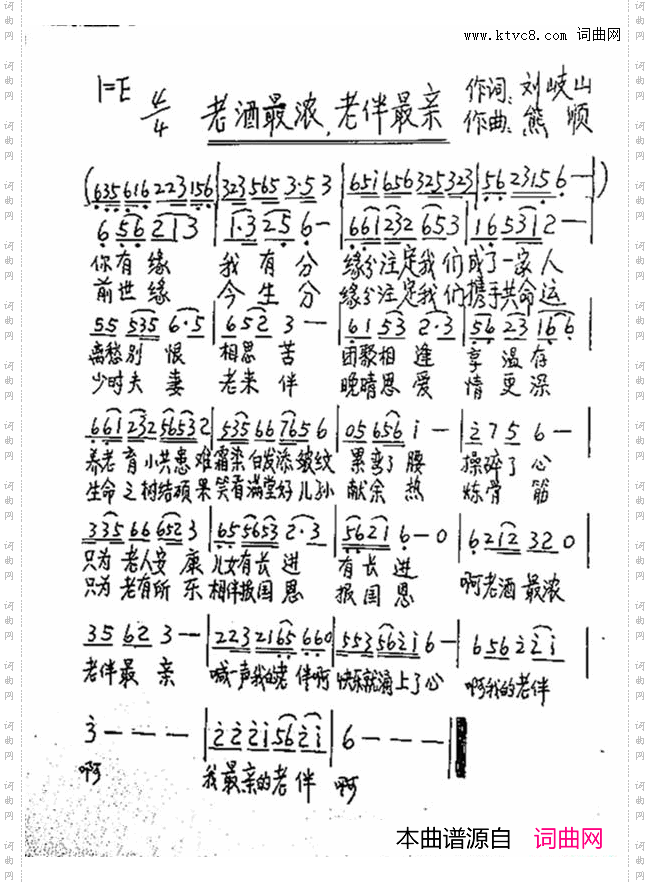 www.ktvc8.com 词曲网
1=E 4/4 老酒最浓,老伴最亲 作词:刘岐山
作曲:熊顺
(635616223156|323565 3·53|651656325323|562315 6—|)
6 56213|1·325 6—|661232 653|165312—|
你有缘 我有分 缘分注定我们成了一家人
前世缘 今生分 缘分注定我们携手共命运
55 535 6·5|652 3—|61 53 2·3|56 23 166|
离愁别恨 相思苦 团聚相逢 享温存
少时夫妻 老来伴 晚晴恩爱 情更深
661232 56532|535 66 765 6|05 656 1—|275 6—|
养老育小共患难霜染白发添皱纹 累弯了腰 操碎了心
生命之树结硕果笑看满堂好儿孙 献余热 炼骨筋
335 66 652 3|65 5653 2·3|5621 6—0|6212 320
只为老人安康儿女有长进 有长进 啊老酒最浓
只为老有所乐相伴报国恩 报国恩
35 62 3——|223 2165 660|553 5621 6—|656 221
老伴最亲 喊一声我的老伴啊 快乐就涌上了心 啊我的老伴
3———|2221 5621|6———
啊 我最亲的老伴 啊
本曲谱源自 词曲网
词曲网